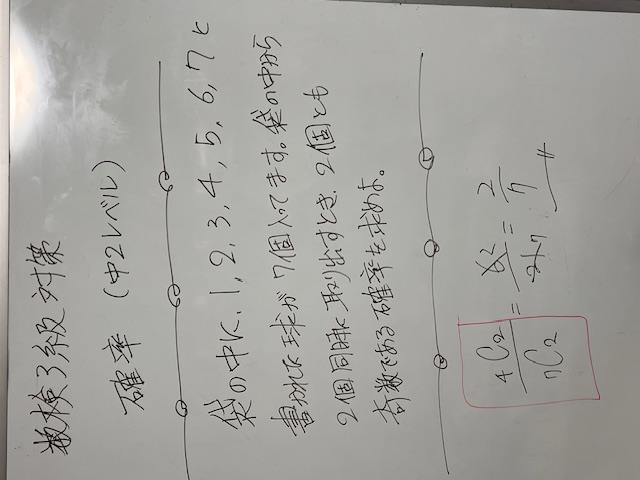 数検3級対策
確率 (中2レベル)
袋の中に、1, 2, 3, 4, 5, 6, 7 と
書かれた球が7個入ってます。袋の中から
2個同時に取り出すとき、2個とも
奇数である確率を求めよ。
4C2/7C2 = 6 2/21 7 = 2/7